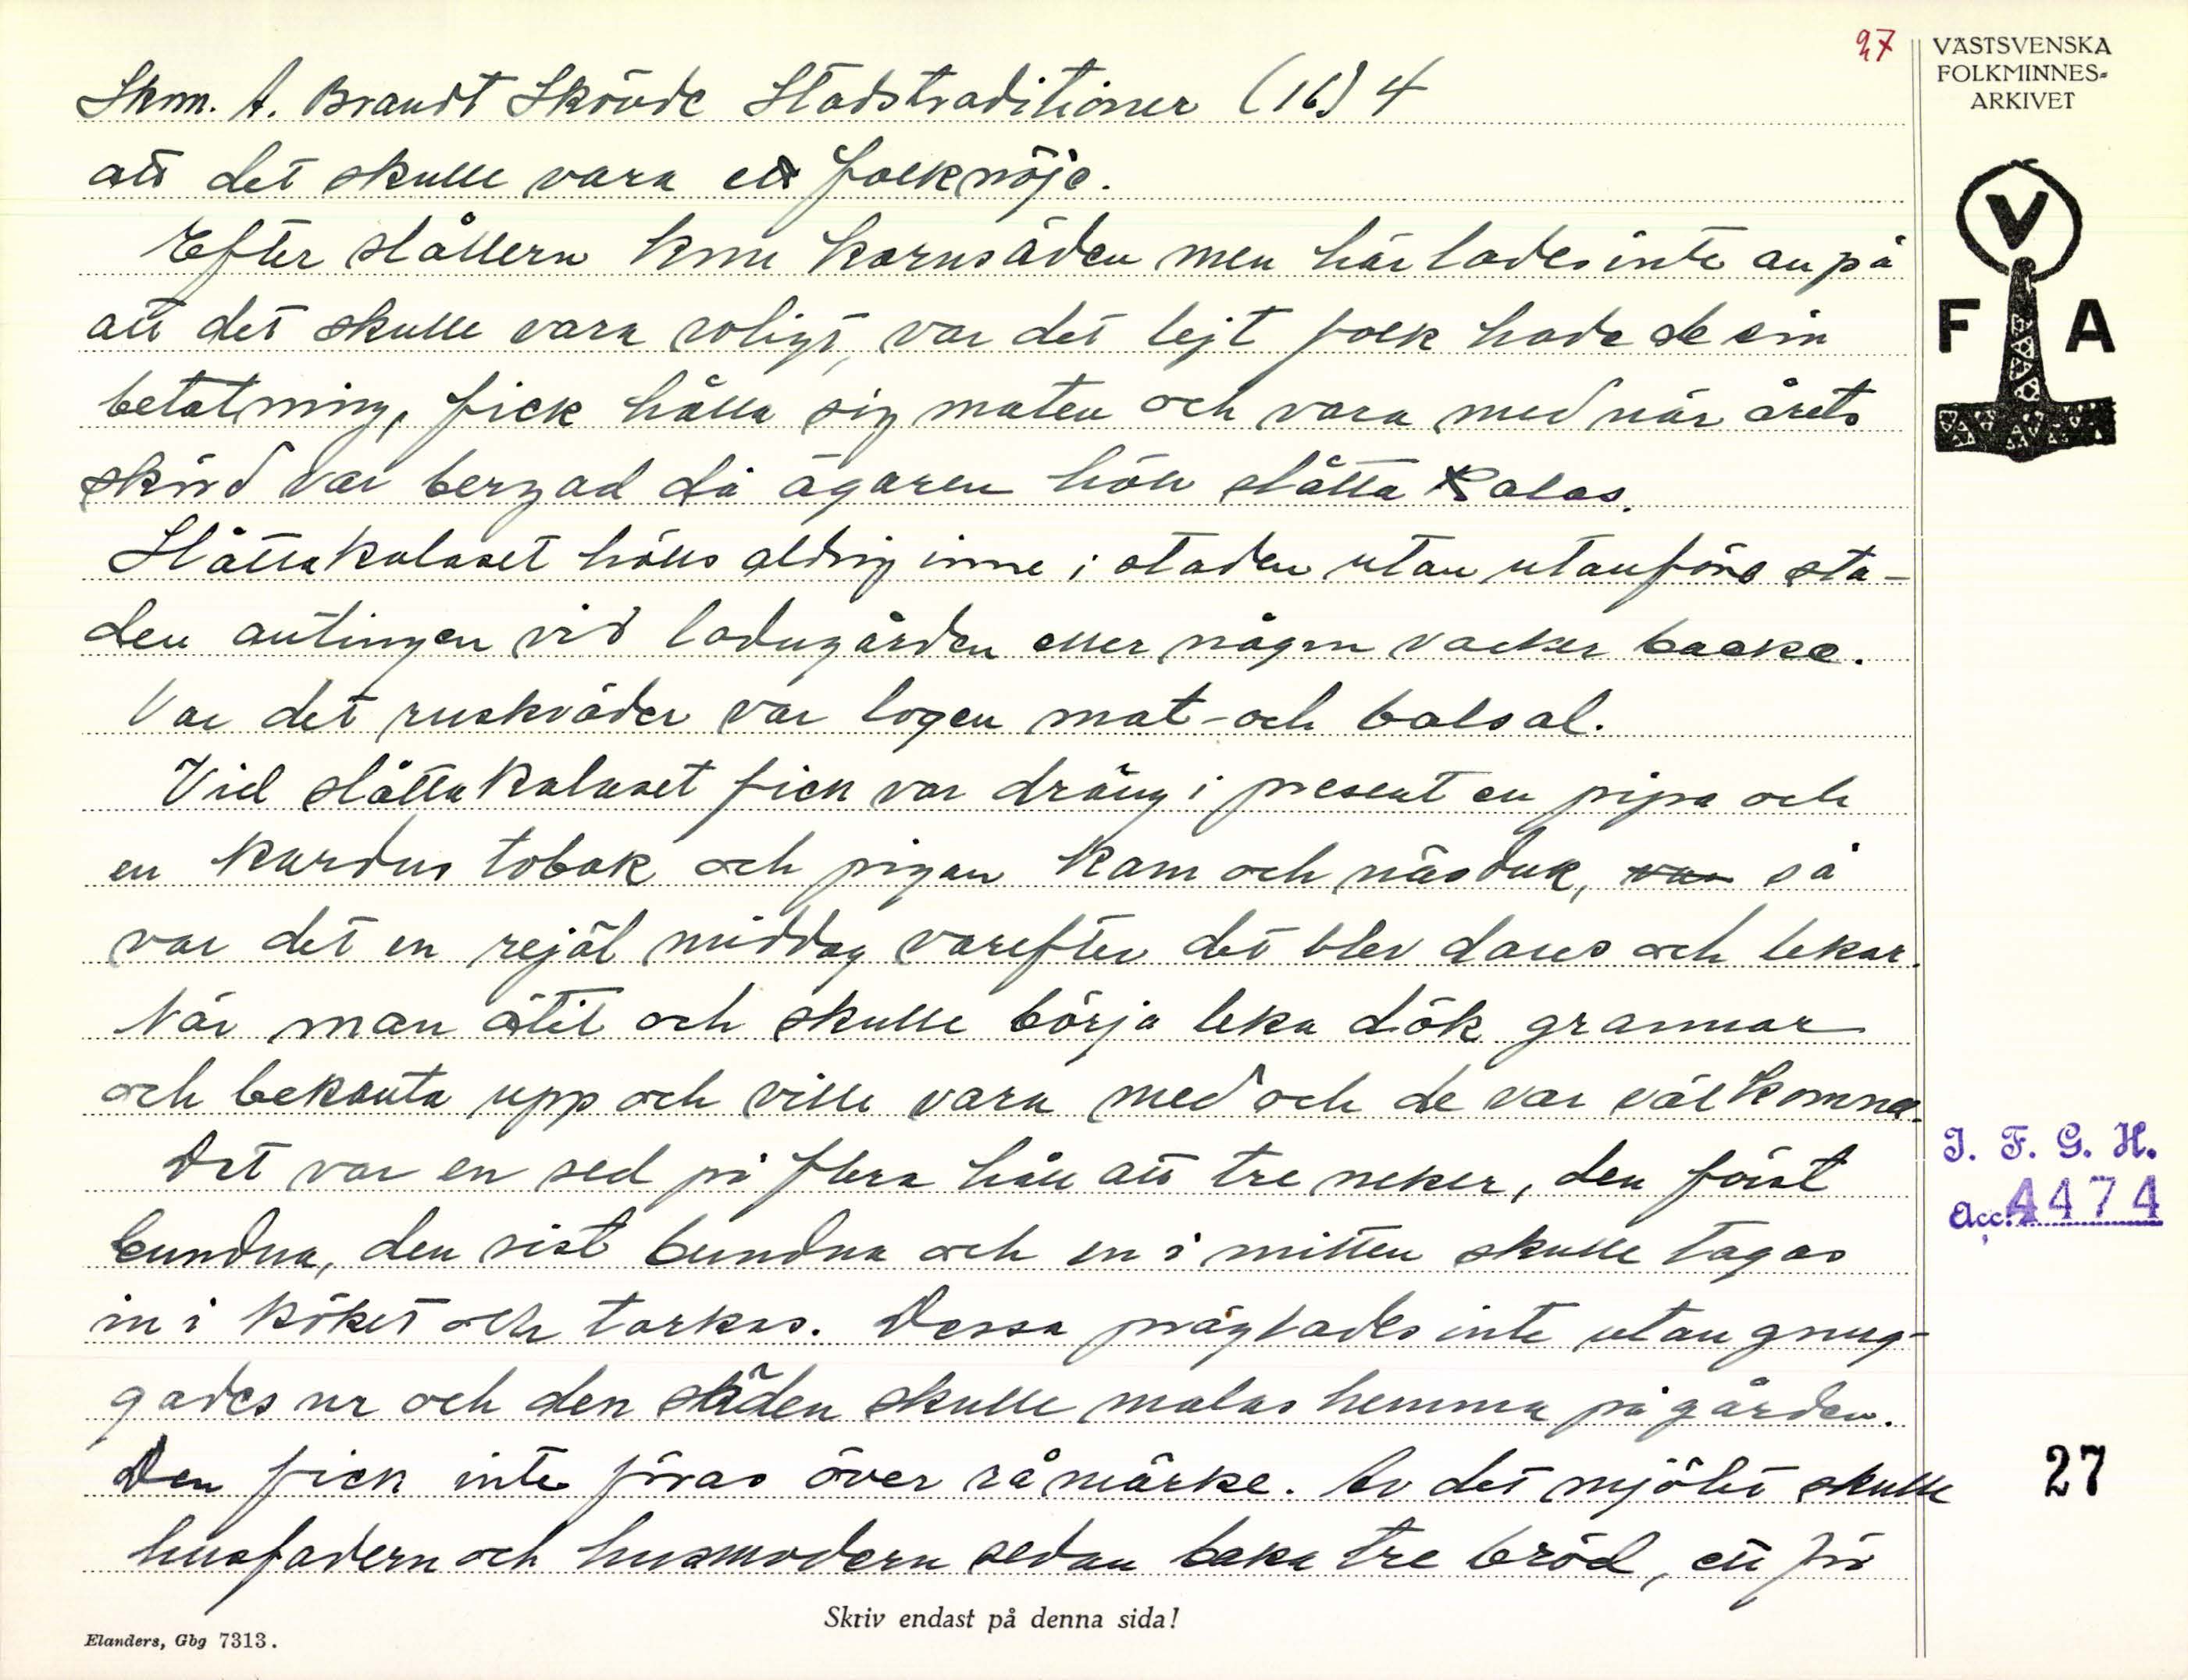 27
VÄSTSVENSKA
FOLKMINNES-
ARKIVET
V
F A
Skm. A. Brandt Skövde Stadstraditioner (16) 4
att det skulle vara ett folknöje.
Efter slåttern kom kornsäden men här lades inte an på
att det skulle vara roligt, var det lejt folk hade de sin
betalning, fick hålla sig maten och vara med när årets
skörd var bergad då ägaren höll slåtta kalas.
Slåttakalaset hölls aldrig inne i staden utan utanföre sta-
den antingen vid ladugården eller någon vacker backe.
Var det ruskväder var logen mat- och balsal.
Vid slåttakalaset fick var dräng i present en pipa och
en kardus tobak och pigan kam och näsduk, så
var det en rejäl middag varefter det blev dans och lekar.
När man ätit och skulle börja leka dök grannar
och bekanta upp och ville vara med och de var välkomna.
Det var en sed på flera håll att tre neker, den först
bundna, den sist bundna och en i mitten skulle tagas
in i köket och torkas. Dessa präglades inte utan gnug-
gades ur och den säden skulle malas hemma på gården.
Den fick inte föras över råmärke. Av det mjölet skulle
husfadern och husmodern sedan baka tre bröd, ett för
J. F. G. H.
Acc. 4474
27
Skriv endast på denna sida!
Elanders, Gbg 7313.